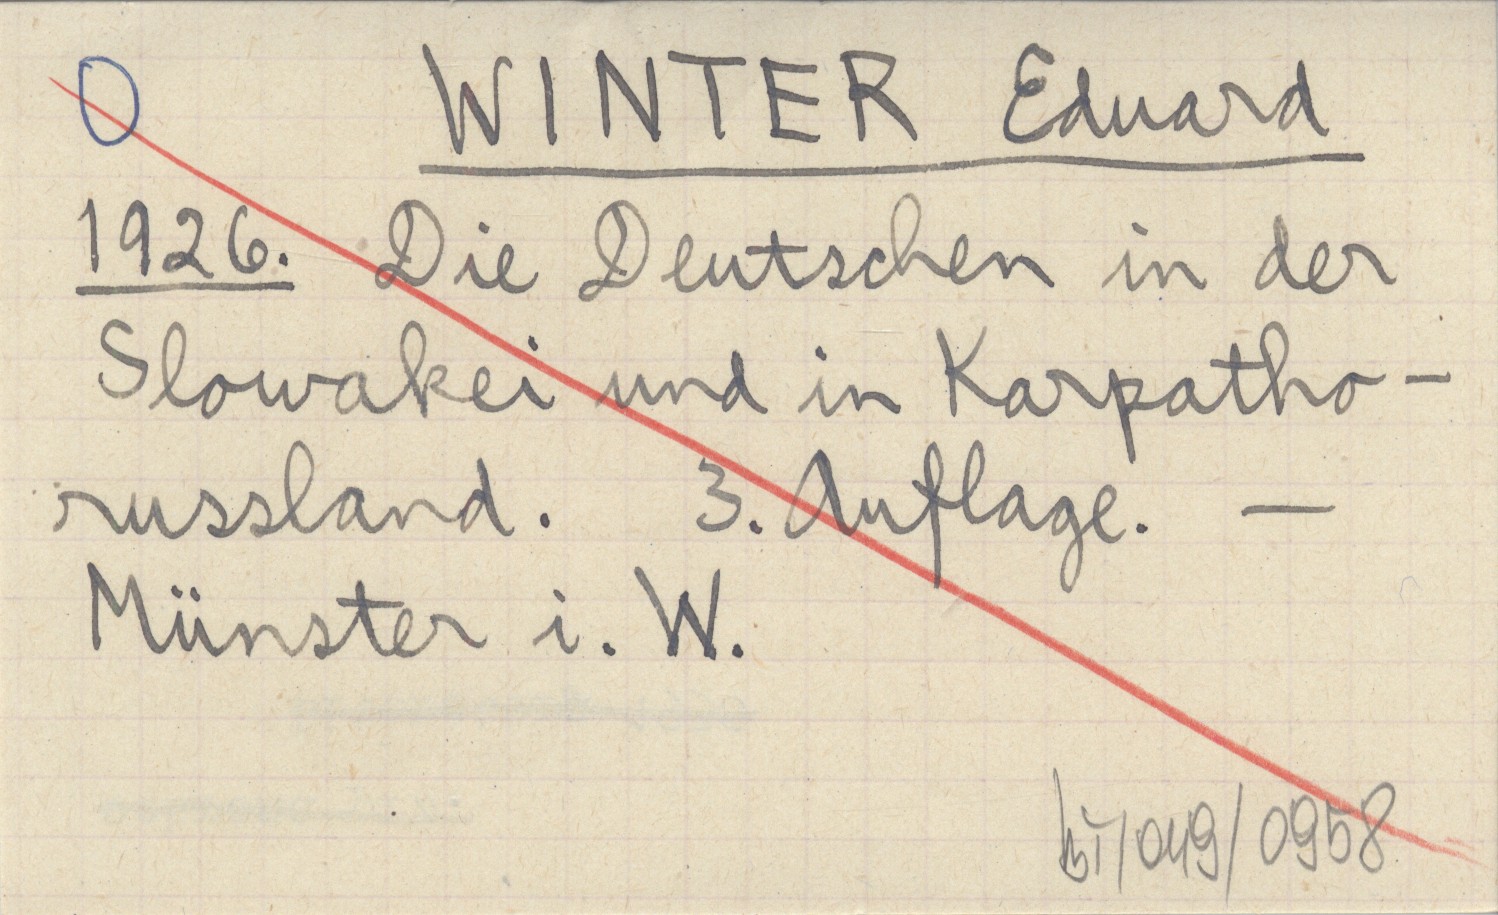 O WINTER Eduard
1926. Die Deutschen in der
Slowakei und in Karpatho-
russland. 3. Auflage. —
Münster i. W.
/049/0958